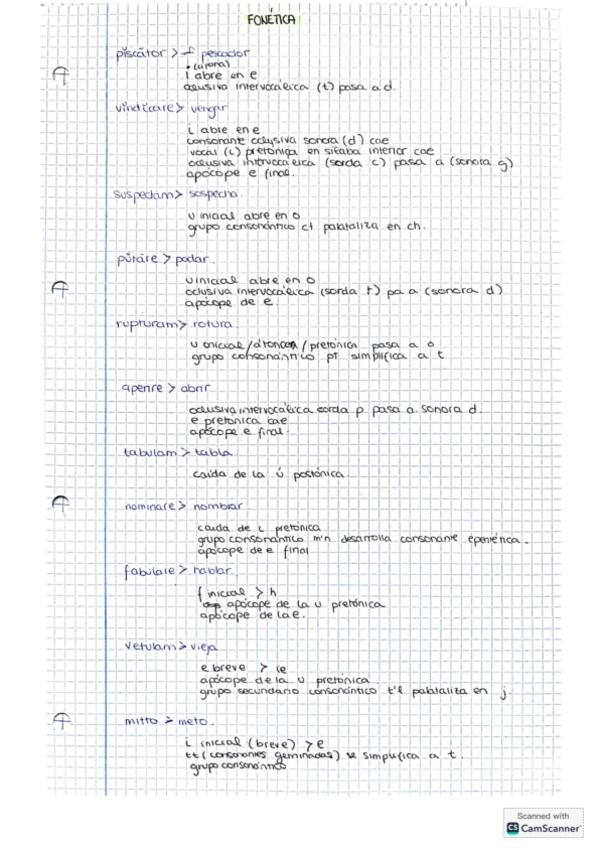 FONÉTICA
piscātor > pescador
(átona)
i abre en e
oclusiva intervocálica (t) pasa a d.
vindicare > vengar
i abre en e
consonante oclusiva sonora (d) cae
vocal (i) pretónica en sílaba interior cae
oclusiva intervocálica (sorda c) pasa a (sonora g)
apócope e final.
suspectam > sospecha
u inicial abre en o
grupo consonántico ct palataliza en ch.
pŭtāre > podar.
u inicial abre en o
oclusiva intervocálica (sorda t) pa a (sonora d)
apócope de e.
rupturam > rotura.
u inicial/átona/pretónica pasa a o
grupo consonántico pt simplifica a t
aperire > abrir
oclusiva intervocálica sorda p pasa a sonora d.
e pretónica cae
apócope e final.
tabulam > tabla.
caída de la ŭ postónica.
nominare > nombrar
caída de i pretónica
grupo consonántico m'n desarrolla consonante epentética.
apócope de e final
fabulare > hablar.
f inicial > h
apócope de la u pretónica
apócope de la e.
vetulam > vieja
e breve > ie
apócope de la u pretónica.
grupo secundario consonántico t'l palataliza en j.
mitto > meto.
i inicial (breve) > e
tt (consonantes geminadas) se simplifica a t.
grupo consonántico
Scanned with
CS CamScanner